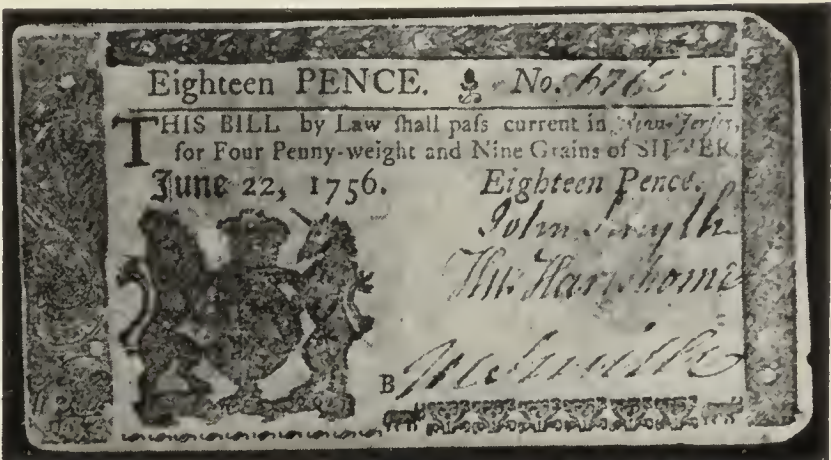 Eighteen PENCE. No. 6765 []
THIS BILL by Law ſhall paſs current in New-Jerſey,
for Four Penny-weight and Nine Grains of SILVER.
June 22, 1756. Eighteen Pence.
John Smyth
Hartshorne
B